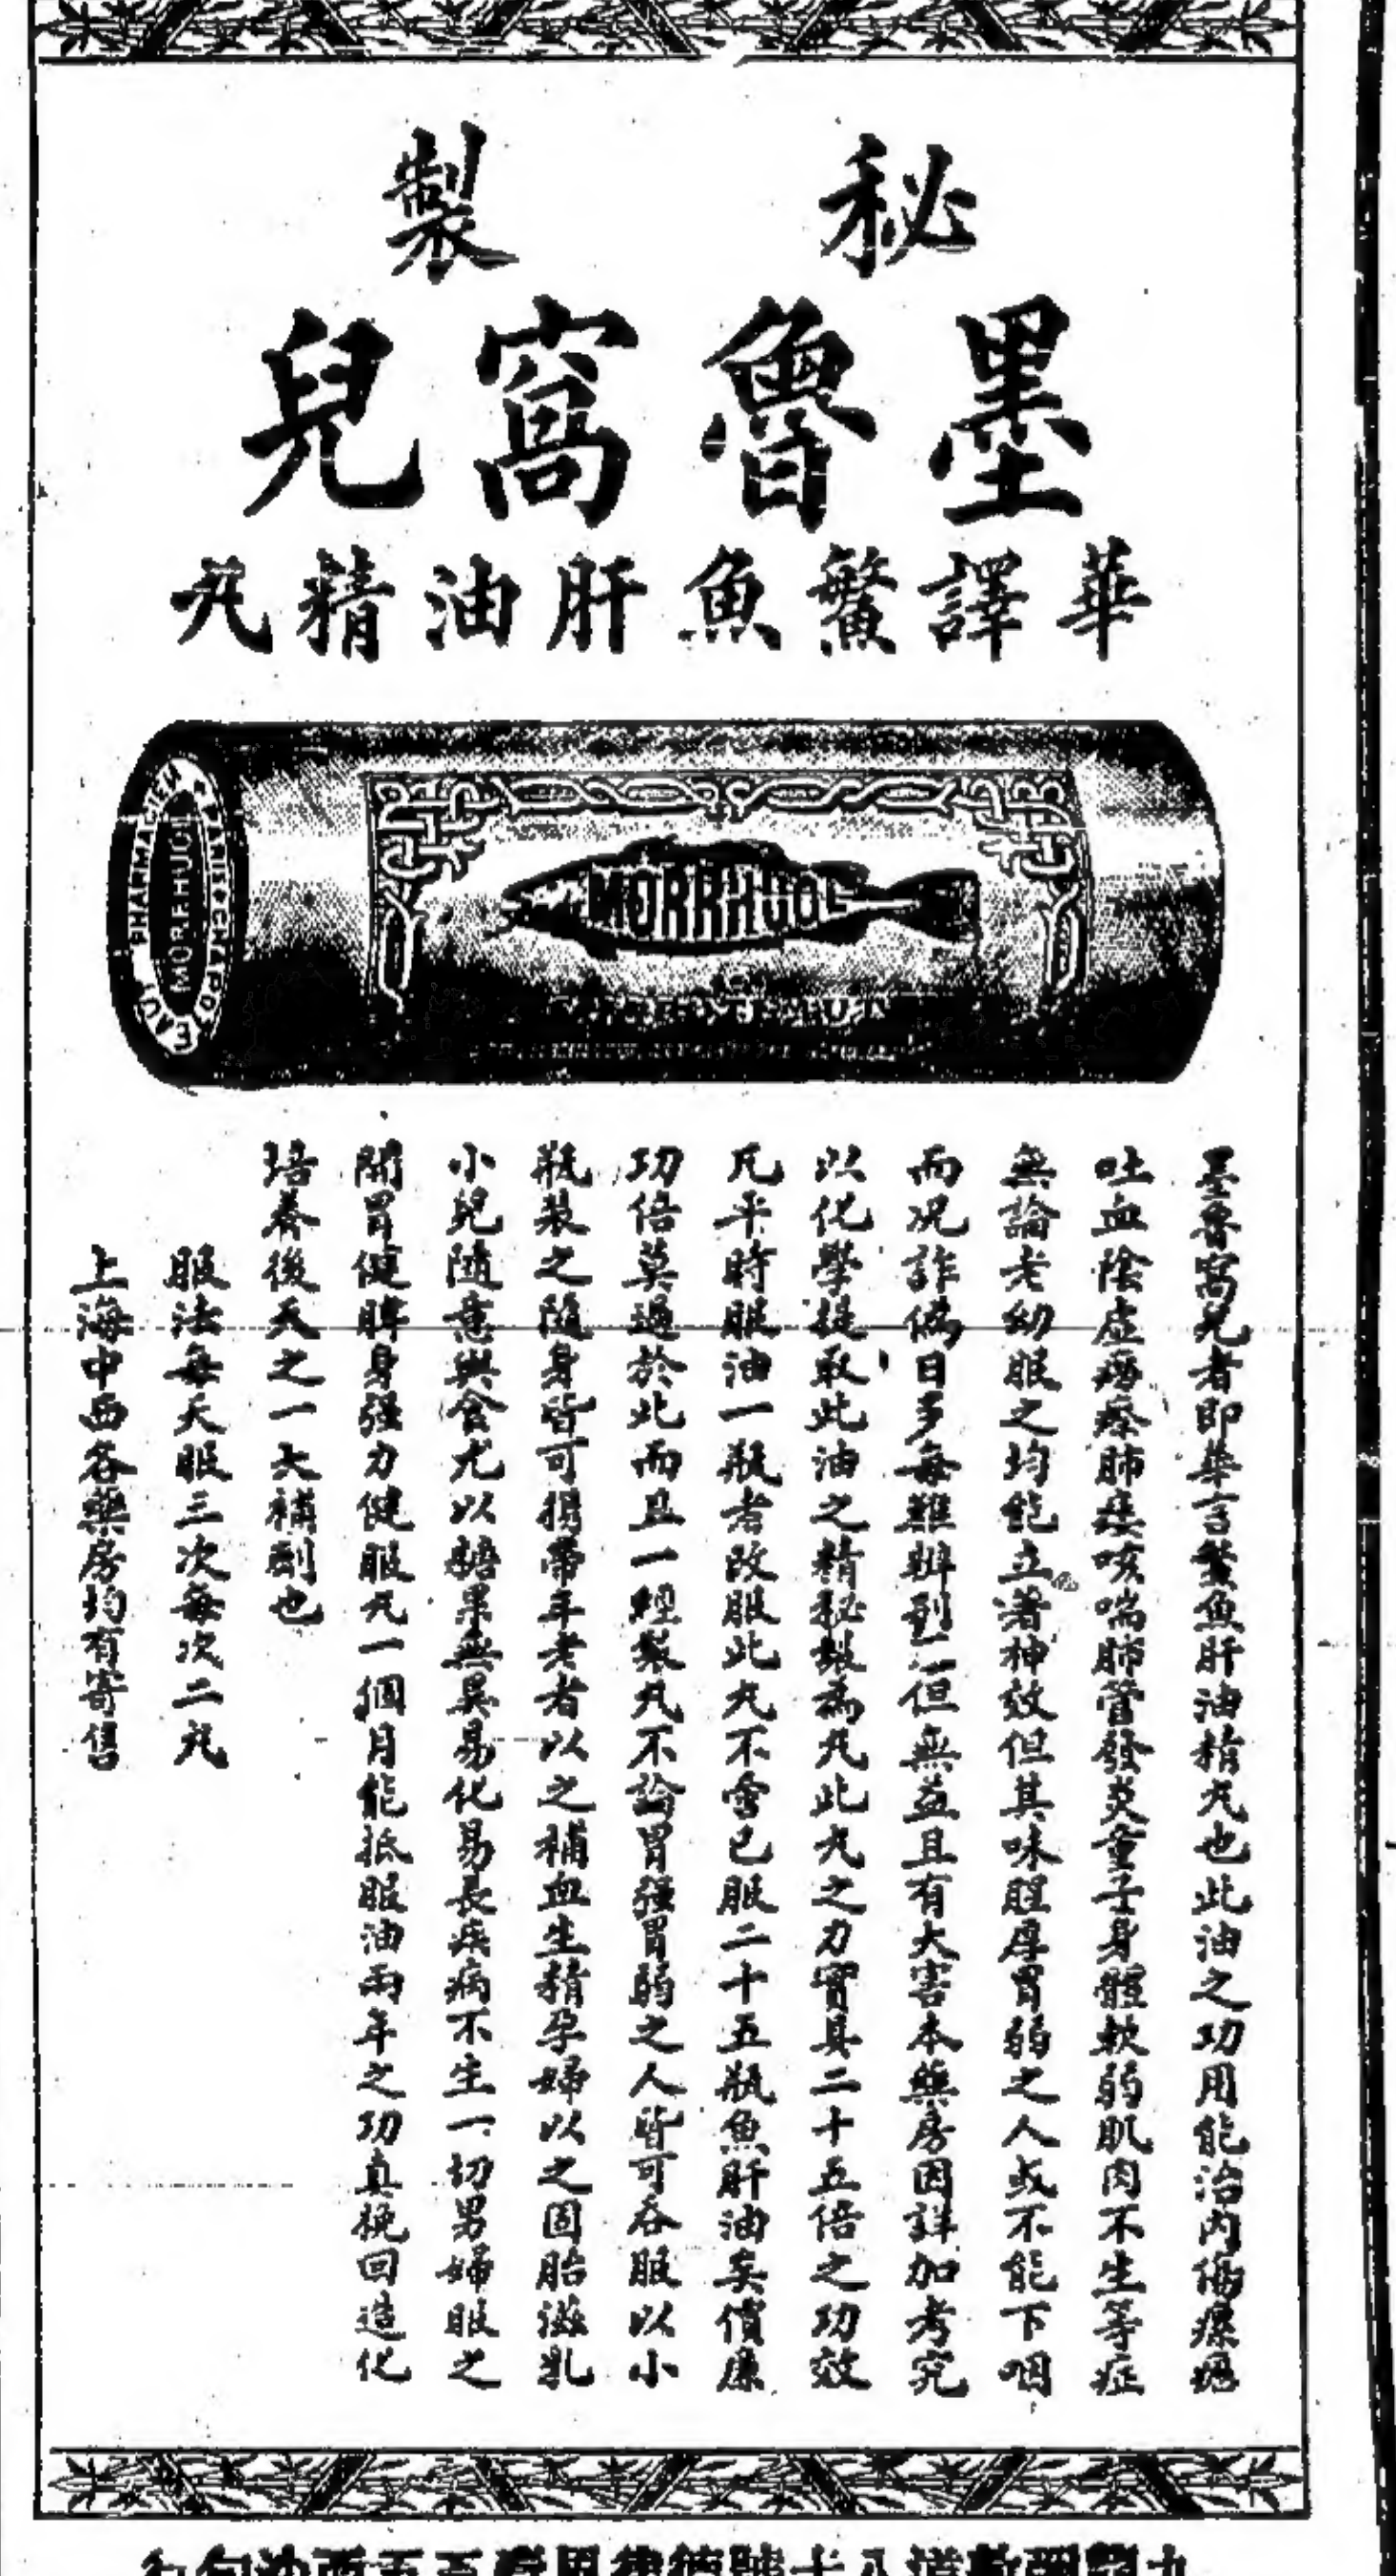 秘製
墨魯窩兒
華譯鱉魚肝油精丸
MORRHUOL
PHARMACIEN PARIS CHAPOTEAUT
MORRHUOL
墨魯窩兒者即華言鱉魚肝油精丸也此油之功用能治內傷瘰癧
吐血陰虛癆瘵肺痿咳喘肺管發炎童子身體軟弱肌肉不生等症
無論老幼服之均能立著神效但其味腥厚胃弱之人或不能下咽
而况詐偽日多每難辨别不但無益且有大害本藥房因詳加考究
以化學提取此油之精秘製為丸此丸之力實具二十五倍之功效
凡平時服油一瓶者改服此丸不啻已服二十五瓶魚肝油矣價廉
功倍莫過於此而且一經製丸不論胃强胃弱之人皆可吞服以小
瓶裝之隨身皆可攜帶年老者以之補血生精孕婦以之固胎滋乳
小兒隨意與食尤以糖果無異易化易長疾病不生一切男婦服之
開胃健脾身强力健服丸一個月能抵服油兩年之功真挽回造化
培養後天之一大補劑也
服法每天服三次每次二丸
上海中西各藥房均有寄售